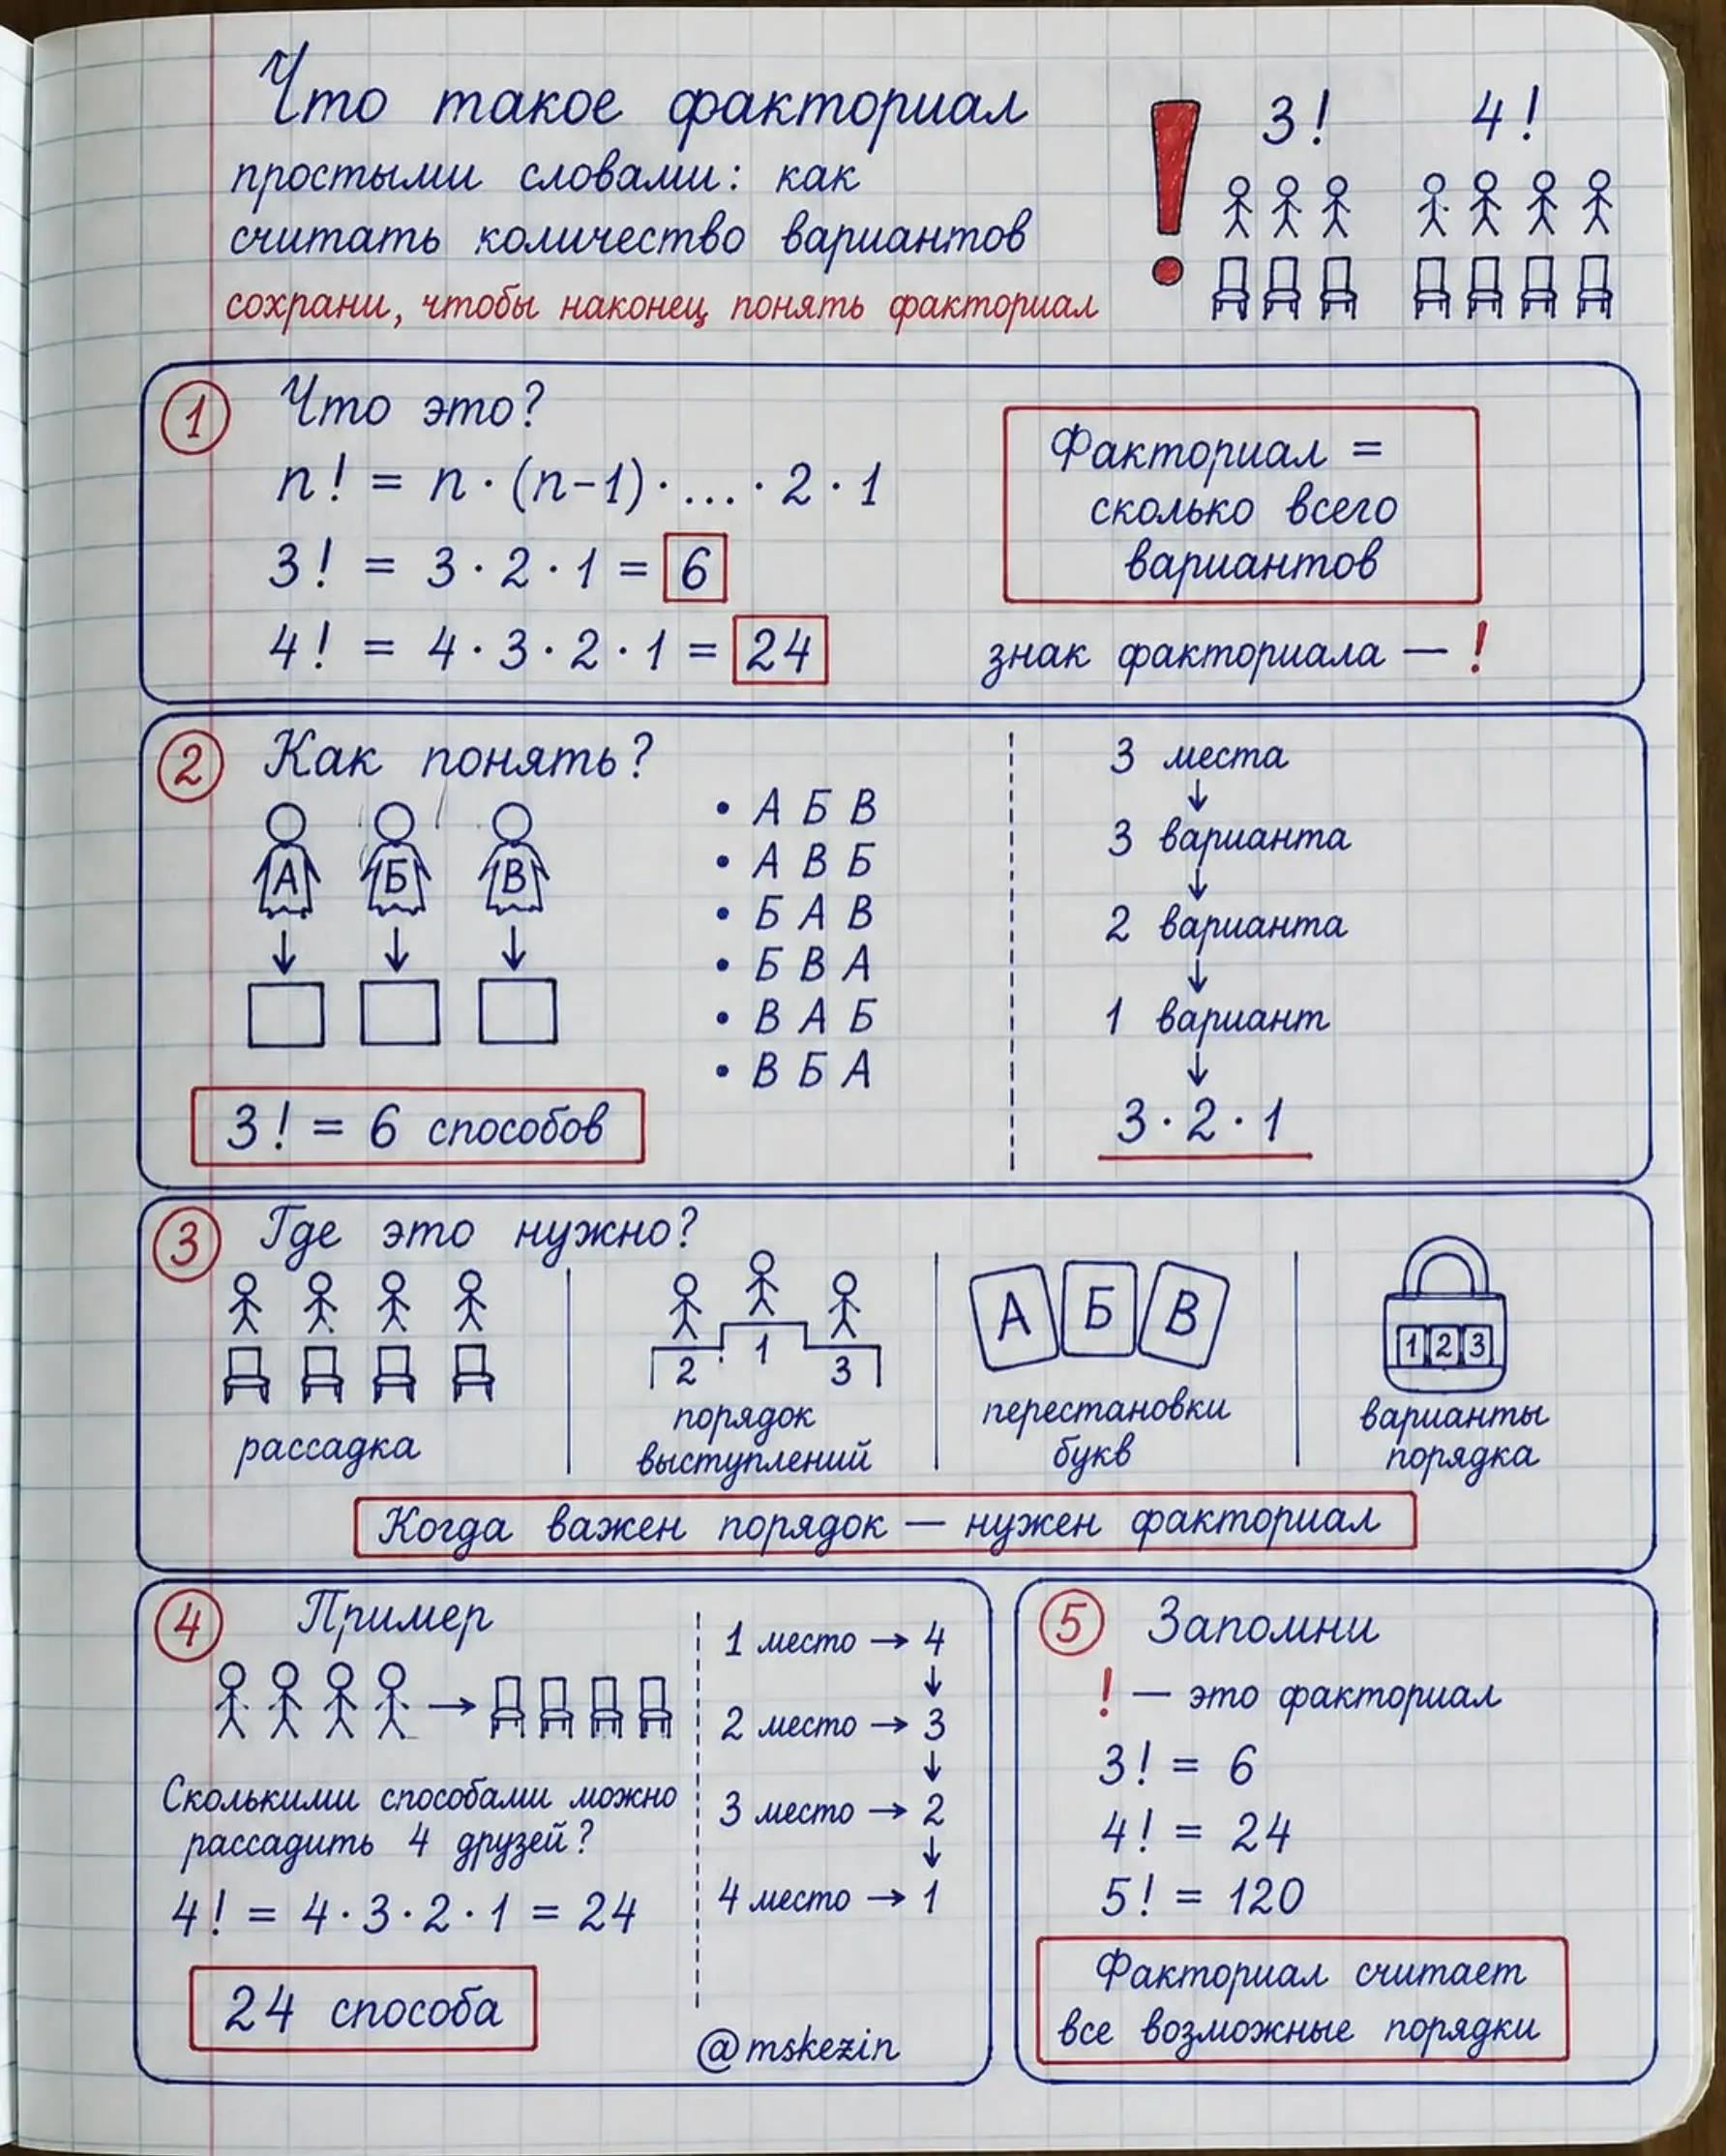 Что такое факториал
простыми словами: как
считать количество вариантов
сохрани, чтобы наконец понять факториал
!
3! 4!
1 Что это?
n! = n · (n-1) · ... · 2 · 1
3! = 3 · 2 · 1 = 6
4! = 4 · 3 · 2 · 1 = 24
Факториал =
сколько всего
вариантов
знак факториала — !
2 Как понять?
А Б В
3! = 6 способов
• А Б В
• А В Б
• Б А В
• Б В А
• В А Б
• В Б А
3 места
↓
3 варианта
↓
2 варианта
↓
1 вариант
↓
3 · 2 · 1
3 Где это нужно?
рассадка
2 1 3
порядок
выступлений
А Б В
перестановки
букв
1 2 3
варианты
порядка
Когда важен порядок — нужен факториал
4 Пример
Сколькими способами можно
рассадить 4 друзей?
4! = 4 · 3 · 2 · 1 = 24
24 способа
1 место → 4
↓
2 место → 3
↓
3 место → 2
↓
4 место → 1
@mskezin
5 Запомни
! — это факториал
3! = 6
4! = 24
5! = 120
Факториал считает
все возможные порядки